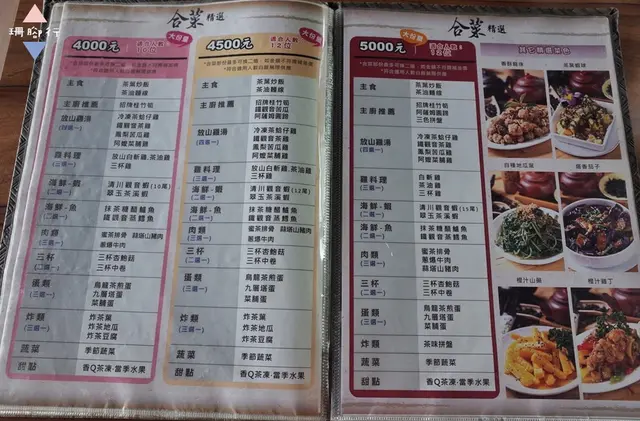 珊的行
合菜精選
4000元
適合人數
10位
大份量
主食
茶葉炒飯
茶油麵線
主廚推薦
招牌桂竹筍
鐵觀音茶粿
放山雞湯
(四選一)
冷凍茶蛤仔雞
鐵觀音茶雞
鳳梨苦瓜雞
阿嬤菜脯雞
雞料理
(三選一)
放山白斬雞.茶油雞
三杯雞
海鮮-蝦
(二選一)
清川觀音蝦(10尾)
翠玉茶溪蝦
海鮮-魚
(二選一)
抹茶糖醋鱸魚
鐵觀音蒸鱸魚
肉類
(三選一)
蜜茶排骨
蒜塔山豬肉
蔥爆牛肉
三杯
(二選一)
三杯杏鮑菇
三杯中卷
蛋類
(三選一)
烏龍茶煎蛋
九層塔蛋
菜脯蛋
炸類
(三選一)
炸茶葉
炸茶地瓜
炸茶豆腐
蔬菜
季節蔬菜
甜點
香Q茶凍·當季水果
4500元
適合人數
12位
大份量
主食
茶葉炒飯
茶油麵線
主廚推薦
招牌桂竹筍
鐵觀音茶粿
阿薩姆圓蹄
放山雞湯
(四選一)
冷凍茶蛤仔雞
鐵觀音茶雞
鳳梨苦瓜雞
阿嬤菜脯雞
雞料理
(三選一)
放山白斬雞.茶油雞
三杯雞
海鮮-蝦
(二選一)
清川觀音蝦(12尾)
翠玉茶溪蝦
海鮮-魚
(二選一)
抹茶糖醋鱸魚
鐵觀音蒸鱸魚
肉類
(三選一)
蜜茶排骨
蒜塔山豬肉
蔥爆牛肉
三杯
(二選一)
三杯杏鮑菇
三杯中卷
蛋類
(三選一)
烏龍茶煎蛋
九層塔蛋
菜脯蛋
炸類
(三選一)
炸茶葉
炸茶地瓜
炸茶豆腐
蔬菜
季節蔬菜
甜點
香Q茶凍·當季水果
合菜精選
5000元
適合人數:
12位
大份量
主食
茶葉炒飯
茶油麵線
主廚推薦
招牌桂竹筍
阿薩姆圓蹄
三色拼盤
放山雞湯
(四選一)
冷凍茶蛤仔雞
鐵觀音茶雞
鳳梨苦瓜雞
阿嬤菜脯雞
雞料理
(三選一)
白斬雞
茶油雞
三杯雞
海鮮-蝦
(二選一)
清川觀音蝦(15尾)
翠玉茶溪蝦
海鮮-魚
(二選一)
抹茶糖醋鱸魚
鐵觀音蒸鱘魚
肉類
(三選一)
蜜茶排骨
蔥爆牛肉
蒜塔山豬肉
三杯
(二選一)
三杯杏鮑菇
三杯中卷
蛋類
(三選一)
烏龍茶煎蛋
九層塔蛋
菜脯蛋
炸類
茶味拼盤
蔬菜
季節蔬菜
甜點
香Q茶凍·當季水果
其它精選菜色
炒種地瓜葉
醬香茄子
橙汁山藥
橙汁雞丁